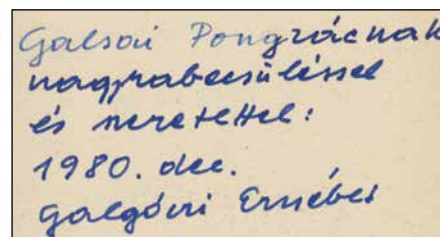 Galsai Pongrácnak
nagyrabecsüléssel
és szeretettel:
1980. dec.
Galgóczi Erzsébet